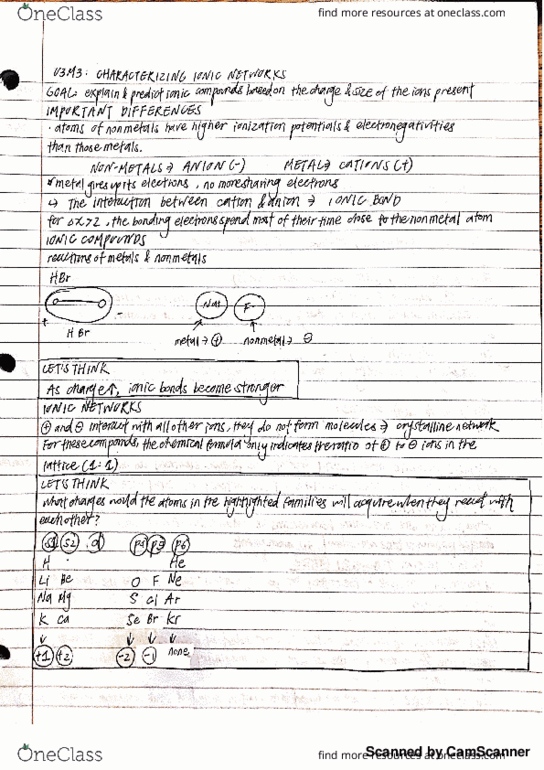 OneClass
find more resources at oneclass.com
U3M3: CHARACTERIZING IONIC NETWORKS
GOAL: explain & predict ionic compounds based on the charge & size of the ions present
IMPORTANT DIFFERENCES
· atoms of nonmetals have higher ionization potentials & electronegativities
than those metals.
NON-METALS → ANION (-) METAL → CATIONS (+)
* metal gives up its electrons, no more sharing electrons
↳ The interaction between cation & anion → IONIC BOND
for ΔX>2, the bonding electrons spend most of their time close to the nonmetal atom
IONIC COMPOUNDS
reactions of metals & nonmetals
HBr
Na+ F-
H Br
metal → ⊕ nonmetal → ⊖
LET'S THINK
As charge↑, ionic bonds become stronger
IONIC NETWORKS
⊕ and ⊖ interact with all other ions, they do not form molecules → crystalline network
For these compounds, the chemical formula only indicates the ratio of ⊕ to ⊖ ions in the
lattice (1:1)
LET'S THINK
What charges would the atoms in the highlighted families will acquire when they react with
each other?
S1 S2 d P5 P6
H He
Li Be O F Ne
Na Mg S Cl Ar
K Ca Se Br Kr
↓ ↓ ↓ ↓
+1 +2 -2 -1 none
OneClass
find more resources at oneclass.com
Scanned by CamScanner